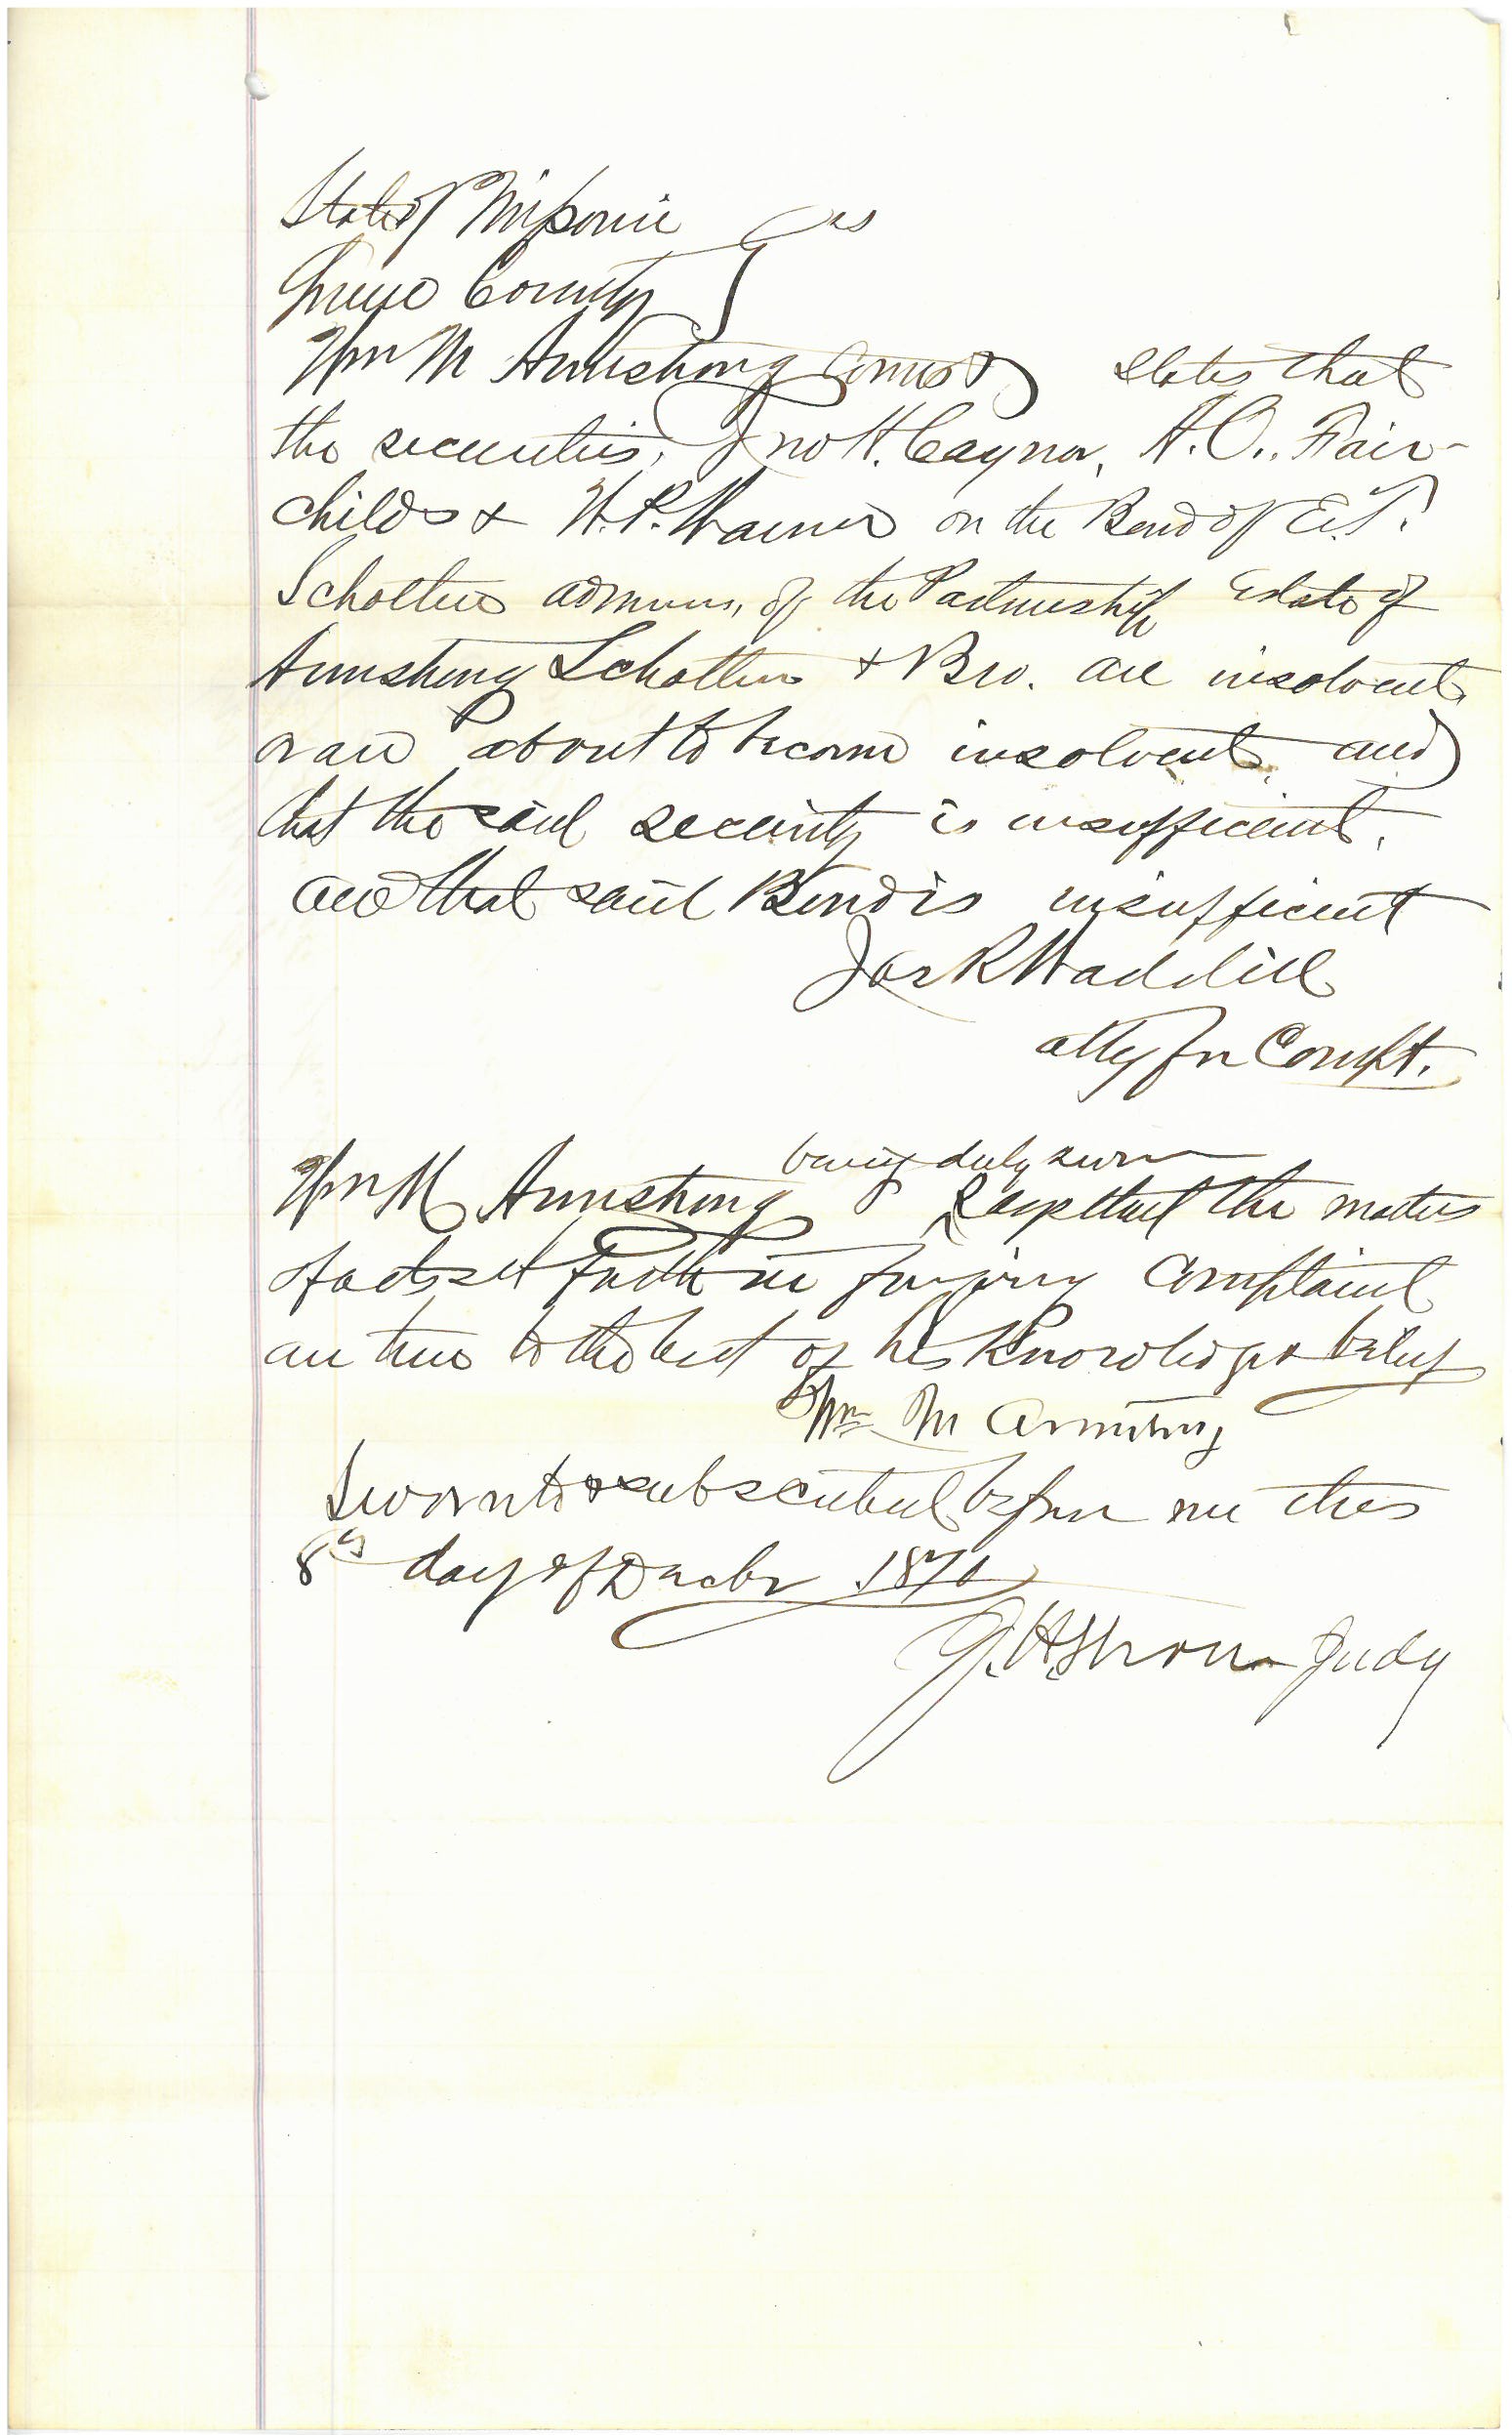 State of Missouri } ss
Greene County
Wm M Armstrong comes & states that
the securities, Jno H. Caynor, A. O. Fair-
childs & W. P. Warner on the Bond of E. T.
Scholten adminr, of the Partnership Estate of
Armstrong Scholten & Bro. are insolvent
or are about to become insolvent, and
that the said security is insufficient,
and that said Bond is insufficient
Jas R Waddill
atty for Complt.
being duly sworn
Wm M Armstrong says that the matters
& facts set forth in foregoing complaint
are true to the best of his Knowledge & belief
Wm M Armstrong
Sworn to & subscribed before me this
8th day of Decbr 1870
Judg